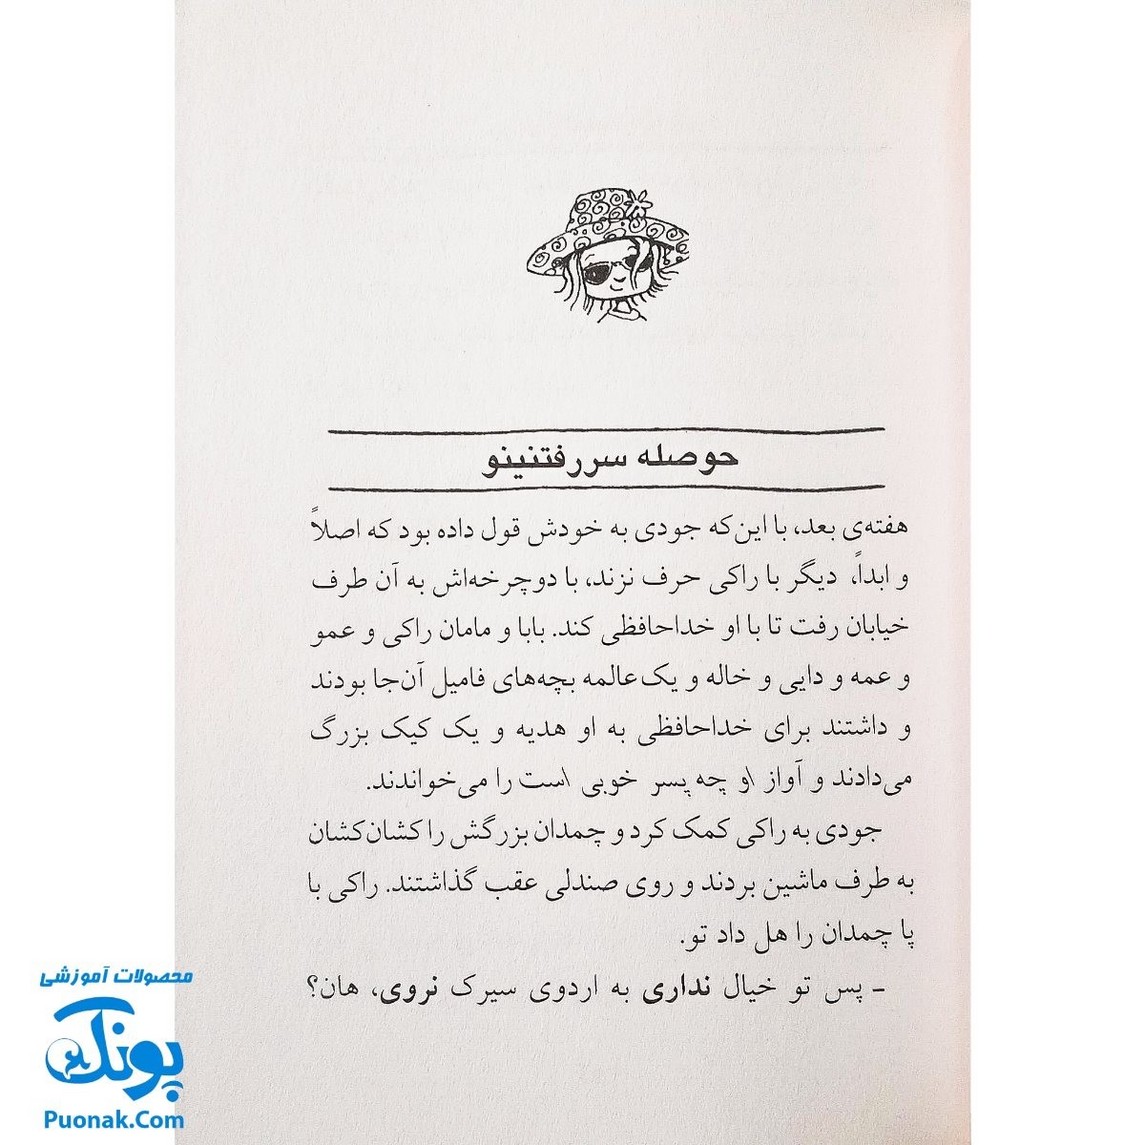 حوصله سررفتنینو
هفته‌ی بعد، با این‌که جودی به خودش قول داده بود که اصلاً
و ابداً، دیگر با راکی حرف نزند، با دوچرخه‌اش به آن طرف
خیابان رفت تا با او خداحافظی کند. بابا و مامان راکی و عمو
و عمه و دایی و خاله و یک‌عالمه بچه‌های فامیل آن‌جا بودند
و داشتند برای خداحافظی به او هدیه و یک کیک بزرگ
می‌دادند و آواز او چه پسر خوبی است را می‌خواندند.
جودی به راکی کمک کرد و چمدان بزرگش را کشان‌کشان
به طرف ماشین بردند و روی صندلی عقب گذاشتند. راکی با
پا چمدان را هل داد تو.
- پس تو خیال نداری به اردوی سیرک نروی، هان؟
محصولات آموزشی
پونک
Puonak.Com